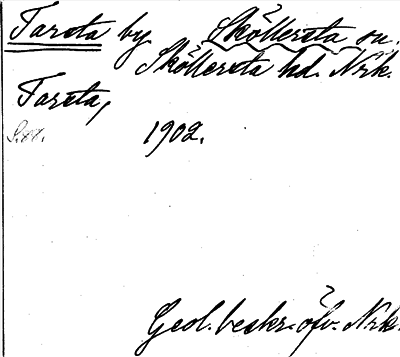 Tarsta by Sköllersta sn.
Sköllersta hd. Nrk.
Tarsta,
1902.
Geol. beskr. öfv. Nrk.